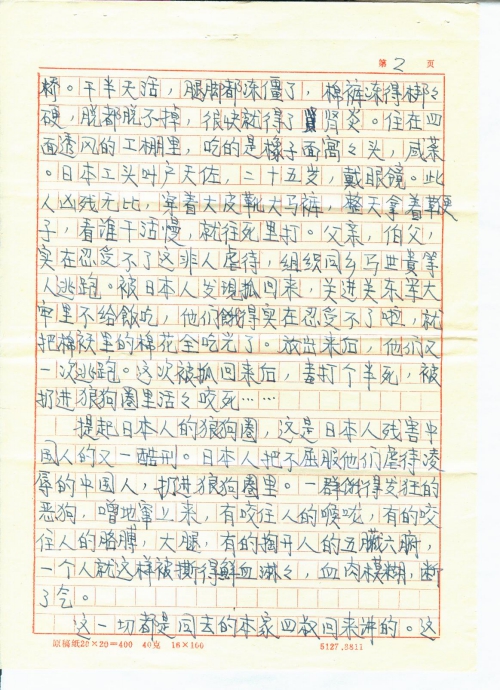 第 2 页
桥。干半天活，腿脚都冻僵了，棉裤冻得梆々
硬，脱都脱不掉，很快就得了肾炎。住在四
面透风的工棚里，吃的是橡子面窝々头，咸菜
。日本工头叫户天佐，二十五岁，戴眼镜。此
人凶残无比，穿着大皮靴大马裤，整天拿着鞭
子，看谁干活慢，就往死里打。父亲，伯父，
实在忍受不了这非人虐待，组织同乡马世貴等
人逃跑。被日本人发现抓回来，关进关东军大
牢里不给飯吃，他们餓得实在忍受不了啦，就
把棉袄里的棉花全吃光了。放出来后，他们又
一次逃跑。这次被抓回来后，毒打个半死，被
扔进狼狗圈里活々咬死……
提起日本人的狼狗圈，这是日本人残害中
国人的又一酷刑。日本人把不屈服他们虐待凌
辱的中国人，扔进狼狗圈里。一群餓得发狂的
恶狗，噌地窜上来，有咬住人的喉咙，有的咬
住人的胳膊，大腿，有的掏开人的五臓六腑，
一个人就这样被撕得鲜血淋々，血肉模糊，断
了气。
这一切都是同去的本家四叔回来讲的。这
原稿纸20×20=400 40克 18×100 5127.8811